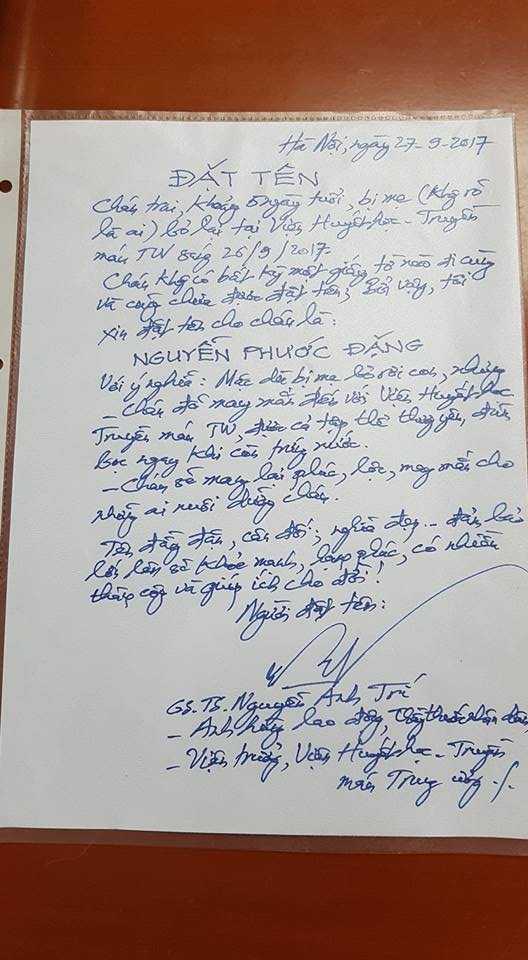 Hà Nội, ngày 27-9-2017
ĐẶT TÊN
Cháu trai, khoảng 5 ngày tuổi, bị mẹ (không rõ
là ai) bỏ lại tại Viện Huyết học - Truyền
máu TW sáng 26/9/2017.
Cháu không có bất kỳ một giấy tờ nào đi cùng
và cũng chưa được đặt tên; Bởi vậy, tôi
xin đặt tên cho cháu là:
NGUYỄN PHƯỚC ĐẶNG
Với ý nghĩa: Mặc dù bị mẹ bỏ rơi con, nhưng
- Cháu đã may mắn đến với Viện Huyết học
Truyền máu TW được cả tập thể thương yêu, đùm
bọc ngay khi còn trứng nước.
- Cháu sẽ mang lại phúc, lộc, may mắn cho
những ai nuôi dưỡng cháu.
Tên đầy đặn, cân đối, nghĩa đẹp... đảm bảo
lớn lên sẽ khỏe mạnh, hạnh phúc, có nhiều
thành công và giúp ích cho đời!
Người đặt tên:
GS.TS. Nguyễn Anh Trí
- Anh hùng lao động, Thầy thuốc nhân dân
- Viện trưởng, Viện Huyết học - Truyền
máu Trung ương